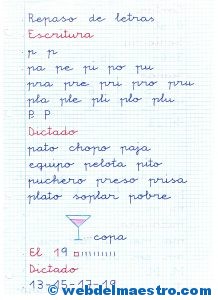 Repaso de letras
Escritura
p p
pa pe pi po pu
pra pre pri pro pru
pla ple pli plo plu
P P
Dictado
pato chopo paja
equipo pelota pito
puchero preso prisa
plato soplar pobre
copa
El 19
Dictado
13-15-17-19
© webdelmaestro.com